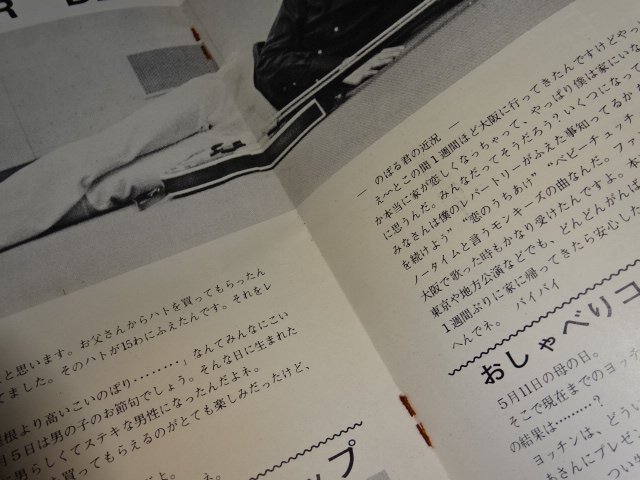 — のぼる君の近況 —
え〜とこの間1週間ほど大阪に行ってきたんですけどやっ
か本当に家が恋しくなっちゃって、やっぱり僕は家にいな
に思うんだ。みんなだってそうだろう?いくつになって
みなさんは僕のレパートリーがふえた事知ってるか
を続けよう" "恋のうちあけ" "ベビーチェッチ
ノータイムと言うモンキーズの曲なんだ。ファ
大阪で歌った時もかなり受けたんですよ。本
東京や地方公演などでも、どんどんがんば
1週間ぶりに家に帰ってきたら安心した
へんでネ。 バイバイ
おしゃべりコ
5月11日の母の日。
そこで現在までのヨッチン
の結果は………?
ヨッチンは、どうい
あさんにプレゼン
つい
と思います。お父さんからハトを買ってもらったん
てました。そのハトが15わにふえたんです。それをレ
屋根より高いこいのぼり………」なんてみんなにこい
月5日は男の子のお節句でしょう。そんな日に生まれた
男らしくてステキな男性になったんだよネ。
を買ってもらえるのがとても楽しみだったけど、
ップ